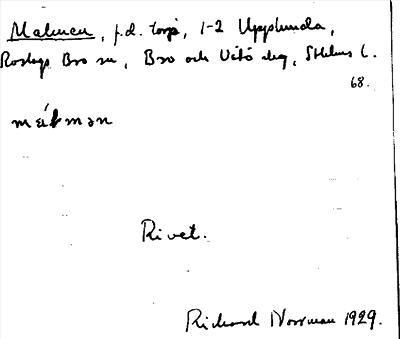 Malmen, f.d. torp, 1-2 Upplunda,
Roslags Bro sn, Bro och Vätö skg, Sthlms l.
68.
Rivet.
Richard Norrman 1929.